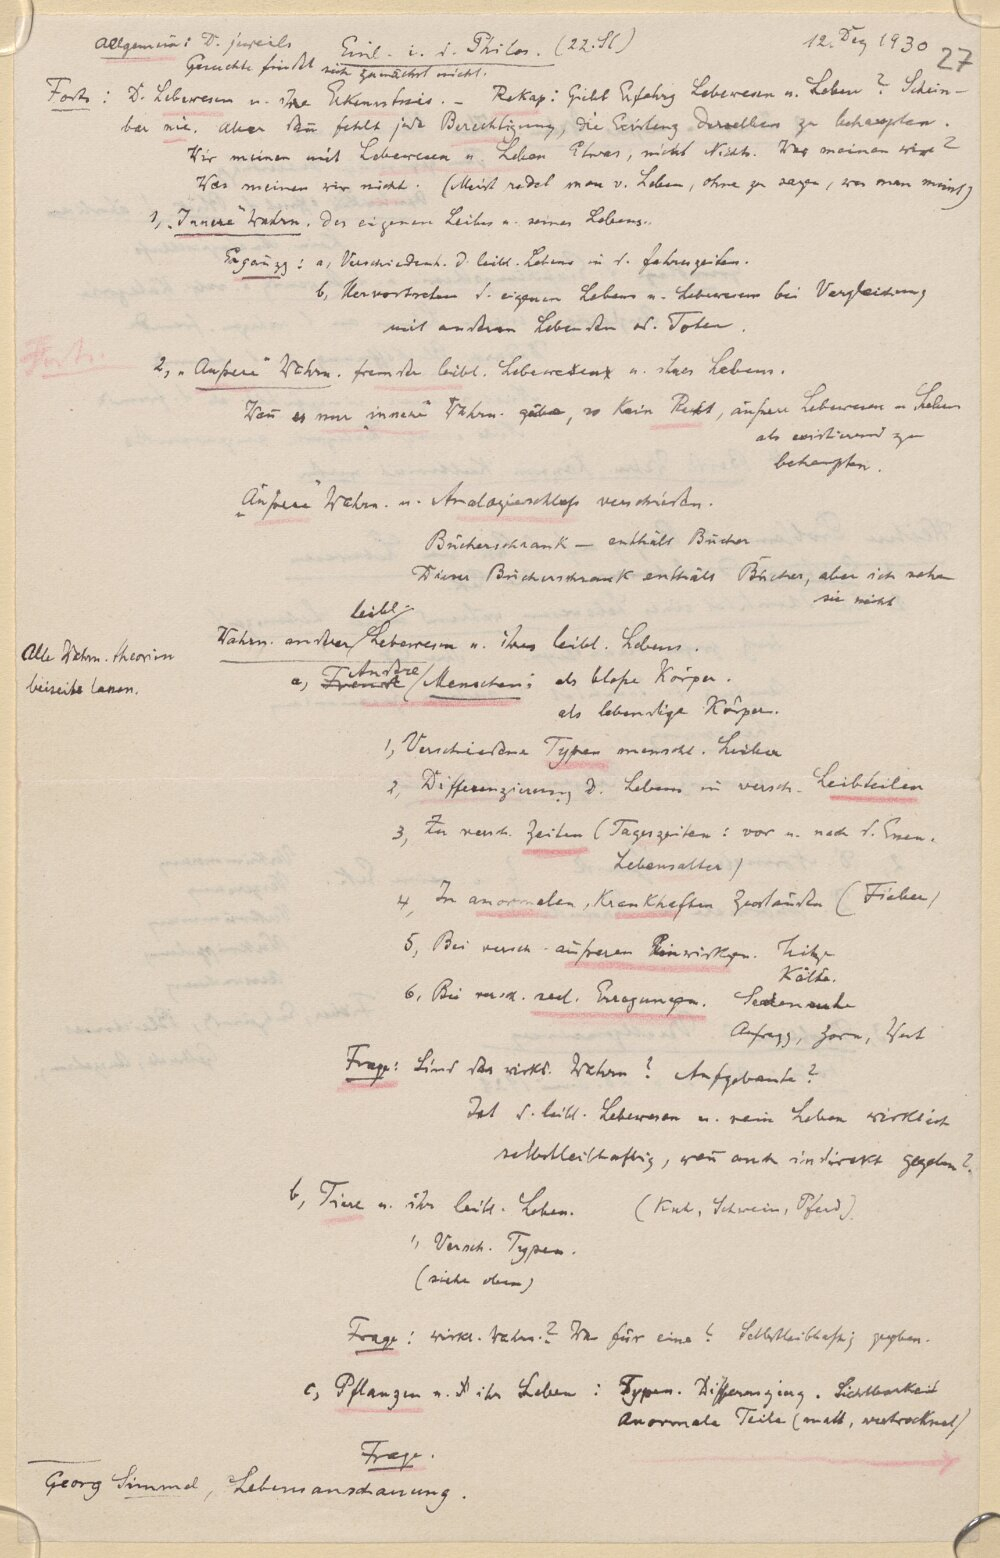 Allgemein: D. jeweils
Gesuchte findet sich zunächst nicht.
Einl. i. d. Philos. (22. St)
12. Dez 1930
27
Forts: D. Lebewesen u. ihre Erkenntnis. – Rekap: Giebt Erfahrg Lebewesen u. Leben? Schein-
bar nie. Aber dann fehlt jede Berechtigung, die Existenz derselben zu behaupten.
Wir meinen mit Lebewesen u Leben Etwas, nicht Nichts. Was meinen wir?
Was meinen wir nicht. (Meist redet man v. Leben, ohne zu sagen, was man meint)
1, „Innere" Wahrn. des eigenen Leibes u. seines Lebens.
Ergänzg: a, Verschiedenh. d. leibl. Lebens in d. Jahreszeiten.
b, Hervortreten d. eigenen Lebens u. Lebewesens bei Vergleichung
mit anderen Lebenden od. Toten.
Forts.
2, „Äußere" Wahrn. fremder leibl. Lebewesen u. ihres Lebens.
Wenn es nur „innere" Wahrn. gäbe, so kein Recht, äußere Lebewesen u Leben
als existierend zu
behaupten.
„Äußere" Wahrn. u. Analogieschluß verschieden.
Bücherschrank – enthält Bücher
Dieser Bücherschrank enthält Bücher, aber ich sehe
sie nicht
leibl.
Wahrn. andrer Lebewesen u. ihres leibl. Lebens.
Alle Wahrn. theorien
beiseite lassen.
a, Fremde Andre Menschen: als bloße Körper.
als lebendige Körper.
1, Verschiedene Typen menschl. Leiber
2, Differenzierung d. Lebens in versch. Leibteilen
3, Zu versch. Zeiten (Tageszeiten: vor u. nach d. Essen.
Lebensalter)
4, In anormalen, krankhaften Zuständen (Fieber)
5, Bei versch. äußeren Einwirkgen. Hitze
Kälte.
6, Bei versch. seel. Erregungen. Seelenruhe
Aufregg, Zorn, Wut
Frage: Sind das wirkl. Wahrn? Aufgebaute?
Ist d. leibl. Lebewesen u. sein Leben wirklich
selbstleibhaftig, wenn auch indirekt gegeben?
b, Tiere u. ihr leibl. Leben. (Kuh, Schwein, Pferd)
1, Versch. Typen.
(siehe oben)
Frage: wirkl. Wahrn.? Was für eine? Selbstleibhaftig gegeben.
c, Pflanzen u. ihr Leben: Typen. Differenzierg. Sichtbarkeit
Anormale Teile (matt, vertrocknet)
Frage.
Georg Simmel, Lebensanschauung.